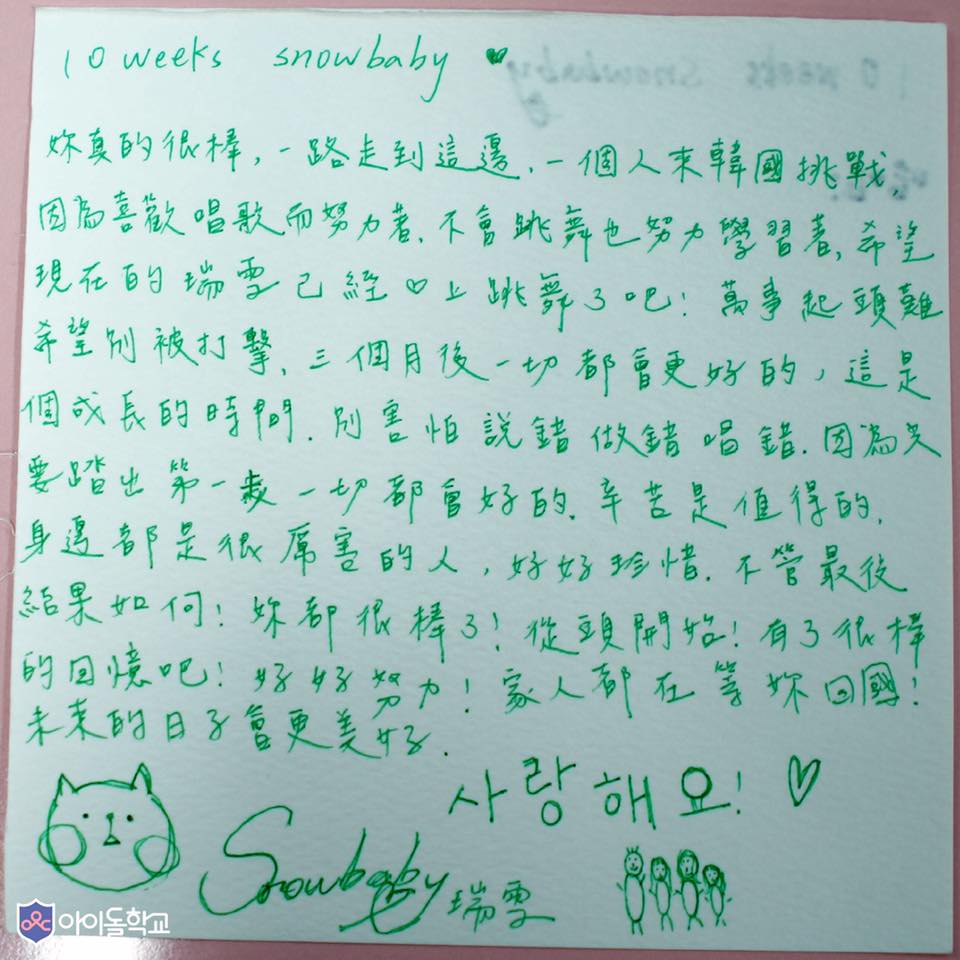 10 weeks snowbaby ♥
妳真的很棒,一路走到這邊,一個人來韓國挑戰,
因為喜歡唱歌而努力著,不會跳舞也努力學習著,希望
現在的瑞雪已經♡上跳舞了吧!萬事起頭難
希望別被打擊,三個月後一切都會更好的,這是
個成長的時間,別害怕說錯做錯唱錯,因為只
要踏出第一步一切都會好的,辛苦是值得的,
身邊都是很厲害的人,好好珍惜,不管最後
結果如何!妳都很棒了!從頭開始!有了很棒
的回憶吧!好好努力!家人都在等妳回國!
未來的日子會更美好.
사랑해요! ♡
Snowbaby 瑞雪
아이돌학교